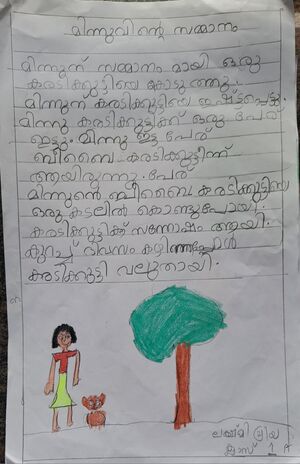 മിന്നുവിന്റെ സമ്മാനം
മിന്നുന് സമ്മാനം മായി ഒരു
കരടിക്കുട്ടിയെ കൊടുത്തു.
മിന്നുന് കരടിക്കുട്ടിയെ ഇഷ്ട്ടപ്പെട്ടു.
മിന്നു കരടിക്കുട്ടിക്ക് ഒരു പേര്
ഇട്ടു. മിന്നു ഇട്ട പേര്
കരടിക്കുട്ടിന്
ആയിരുന്നു പേര്
മിന്നുന്റെ കരടിക്കുട്ടിയെ
ഒരു കടലിൽ കൊണ്ടുപോയി.
കരടിക്കുട്ടിക്ക് സന്തോഷം ആയി.
കുറച്ച് ദിവസം കഴിഞ്ഞപ്പോൾ
കരടിക്കുട്ടി വലുതായി.
ലക്ഷ്മി പ്രിയ
ക്ലാസ് 1 A